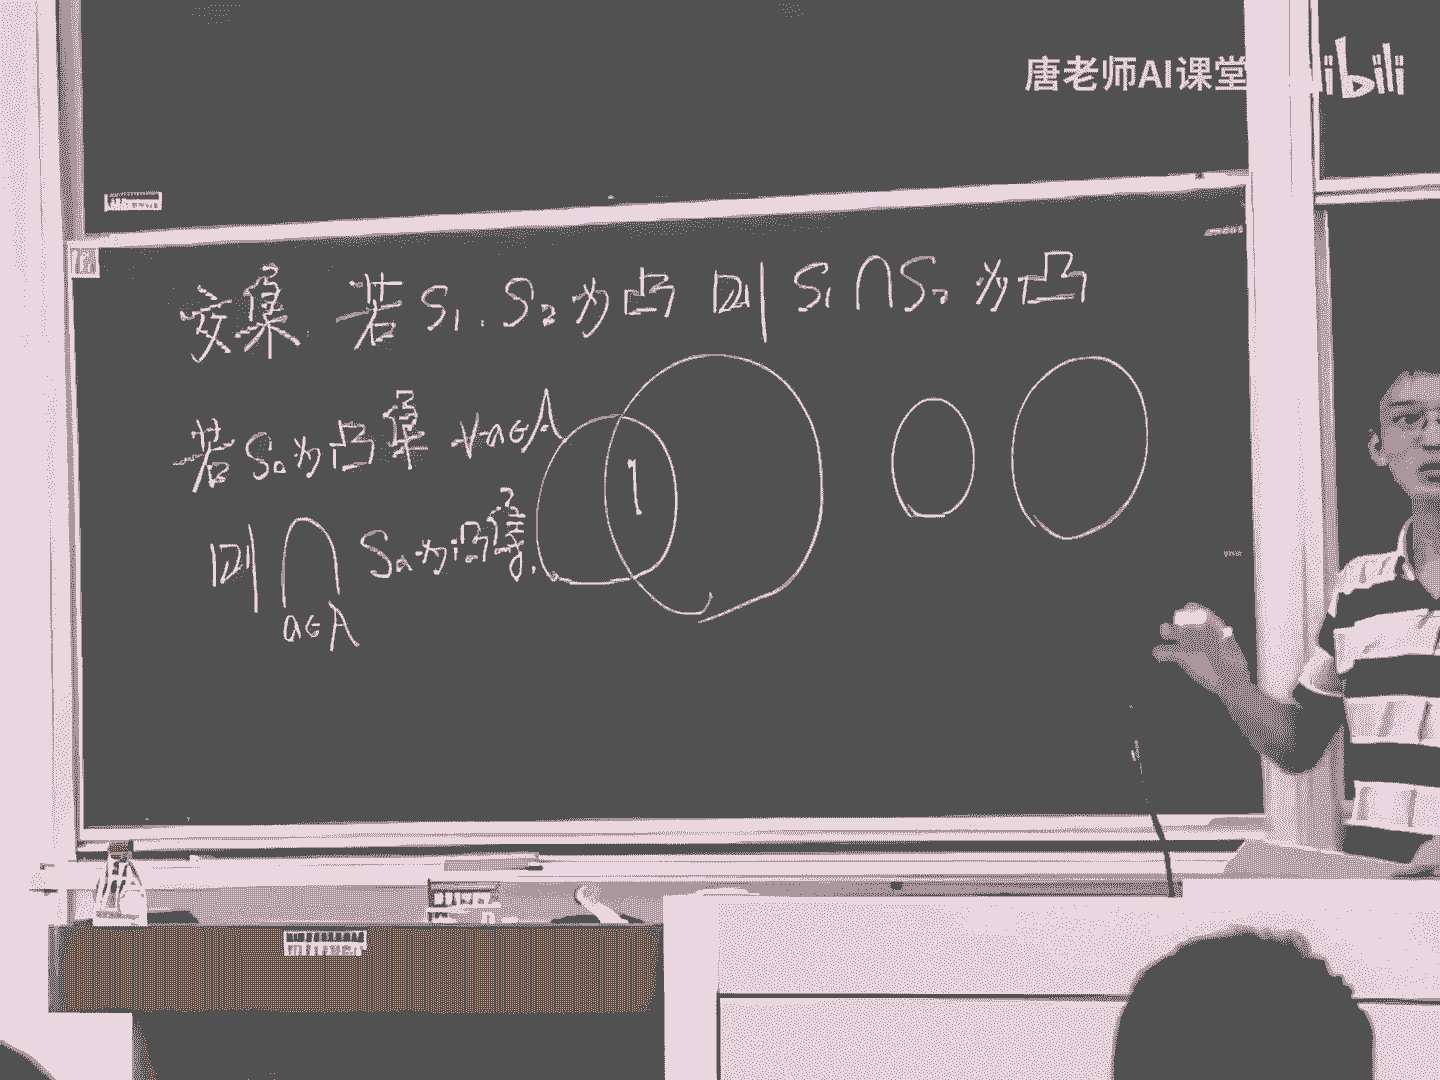 唐老师AI课堂 bilibili
交集 若S₁.S₂为凸 则 S₁∩S₂ 为凸
若Sₐ为凸集 ∀a∈A
则 ∩ Sₐ为凸集.
a∈A